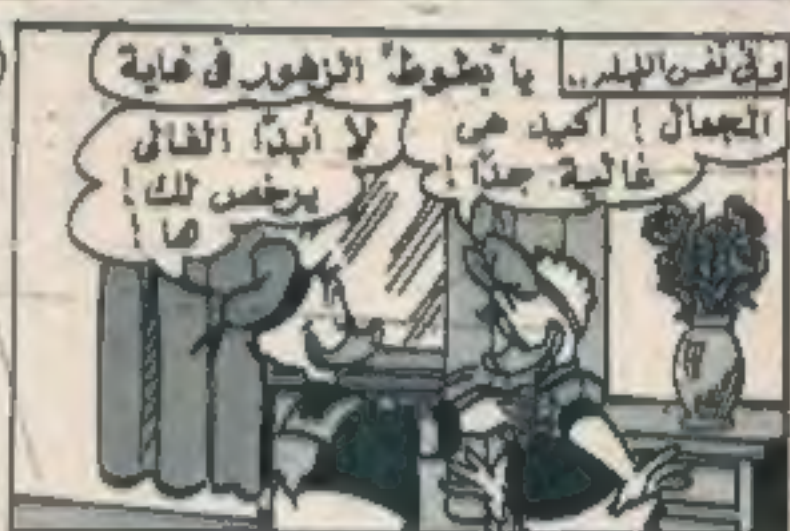 وفى نفس اليوم..
يا "بطوط" الزهور فى غاية
الجمال ! أكيد هى
غالية جدًا !
لا أبدًا الغالى
يرخص لك !
ها !